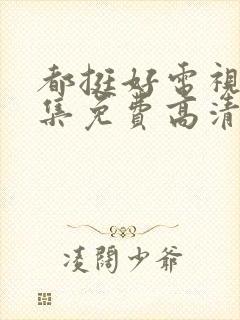 都挺好电視
集免費高清
凌阔少爺